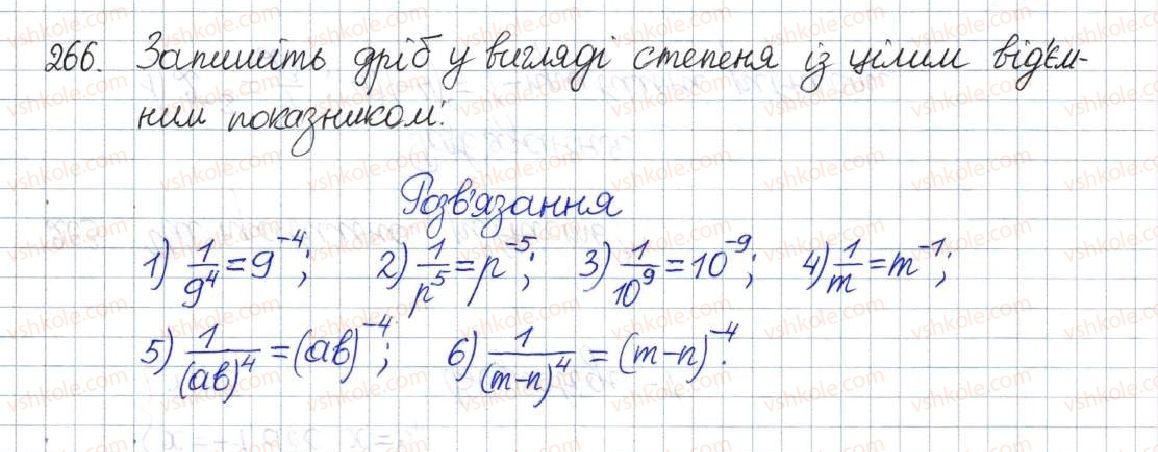 266. Запишіть дріб у вигляді степеня із цілим від'єм-
ним показником:
Розв'язання
1) 1/9⁴ = 9⁻⁴; 2) 1/p⁵ = p⁻⁵; 3) 1/10⁹ = 10⁻⁹; 4) 1/m = m⁻¹;
5) 1/(ab)⁴ = (ab)⁻⁴; 6) 1/(m-n)⁴ = (m-n)⁻⁴.